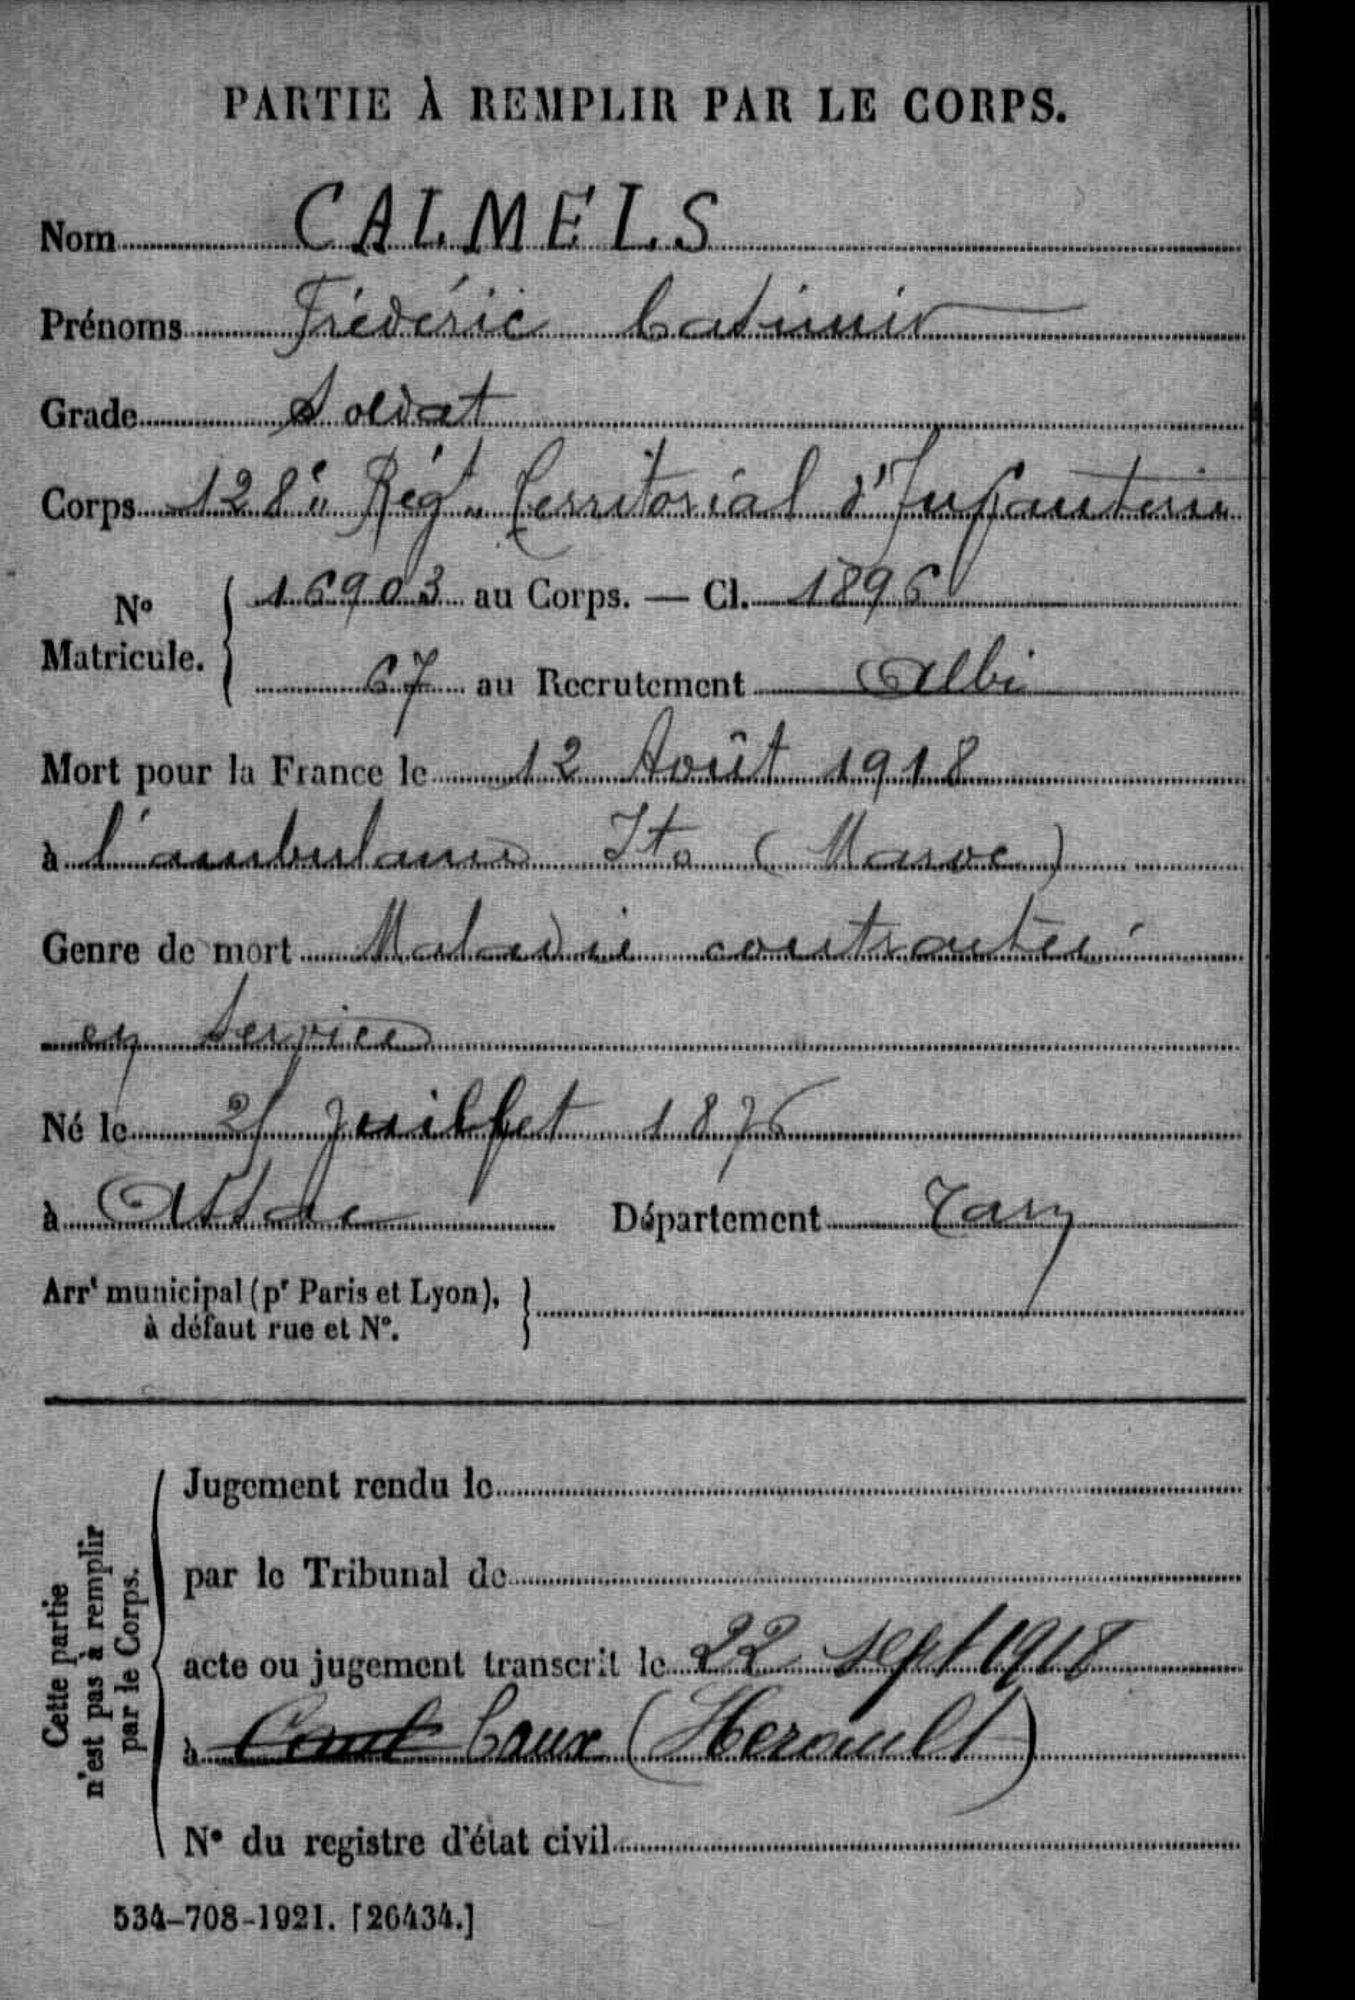 PARTIE À REMPLIR PAR LE CORPS.
Nom CALMELS
Prénoms Frédéric Casimir
Grade Soldat
Corps 128e Régt Territorial d'Infanterie
No Matricule. 16903 au Corps. — Cl. 1896
67 au Recrutement Albi
Mort pour la France le 12 Août 1918
à l'ambulance Ito (Maroc)
Genre de mort Maladie contractée
en service
Né le Juillet 1876
à Assac Département Tarn
Arrt municipal (pr Paris et Lyon), à défaut rue et No.
Cette partie n'est pas à remplir par le Corps.
Jugement rendu le
par le Tribunal de
acte ou jugement transcrit le 22 sept 1918
à Caux (Herault)
No du registre d'état civil
534-708-1921. [26434.]